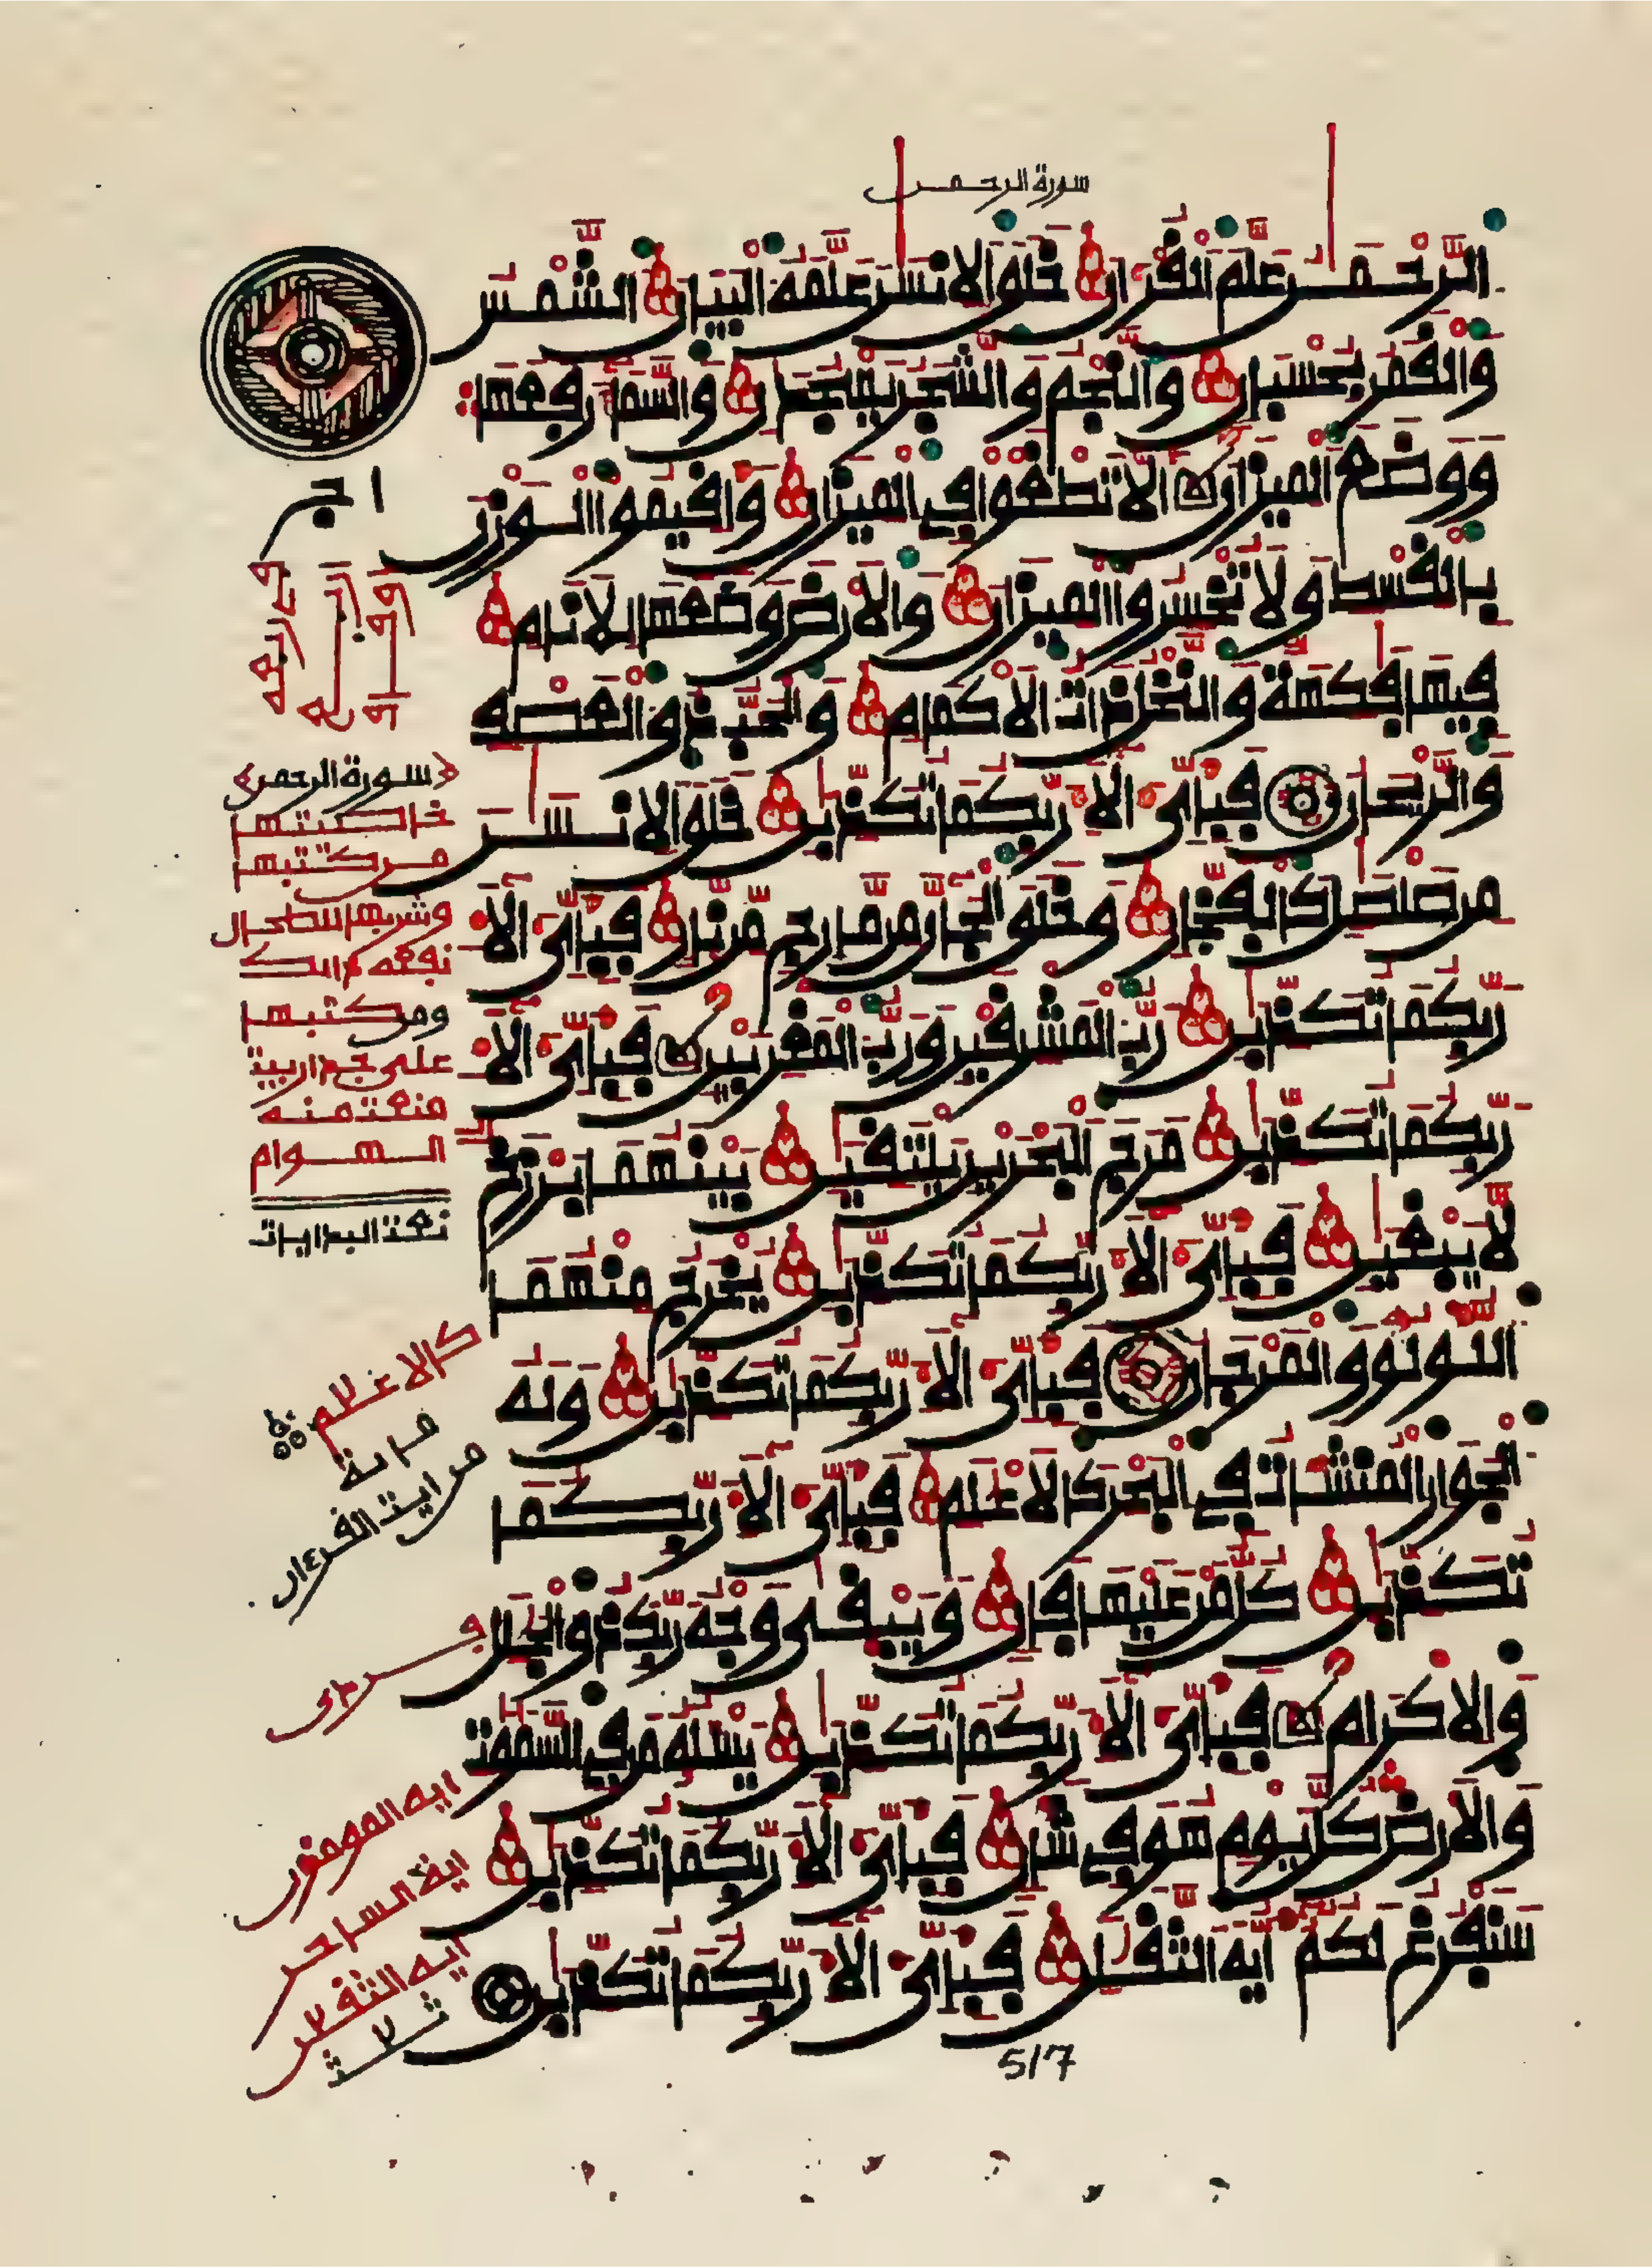 سورة الرحمن
الرحمن علم القران خلق الانسن علمه البيان الشمس
والقمر بحسبان والنجم والشجر يسجدان والسماء رفعها
ووضع الميزان الا تطغوا في الميزان واقيموا الوزن
بالقسط ولا تخسروا الميزان والارض وضعها للانام
فيها فكهة والنخل ذات الاكمام والحب ذو العصف
والريحان فباي الاء ربكما تكذبان خلق الانسن
من صلصل كالفخار وخلق الجان من مارج من نار فباي الاء
ربكما تكذبان رب المشرقين ورب المغربين فباي الاء
ربكما تكذبان مرج البحرين يلتقين بينهما برزخ
لا يبغين فباي الاء ربكما تكذبان يخرج منهما
اللولو والمرجان فباي الاء ربكما تكذبان وله
الجوار المنشات في البحر كالاعلم فباي الاء ربكما
تكذبان كل من عليها فان ويبقى وجه ربك ذو الجلل
والاكرام فباي الاء ربكما تكذبان يسله من في السموت
والارض كل يوم هو في شان فباي الاء ربكما تكذبان
سنفرغ لكم ايه الثقلن فباي الاء ربكما تكذبان
517
﴿سورة الرحمن﴾
خاصيتها
من كتبها
وشربها للطحال
نفعه ذالك
ومن كتبها
على جدار بيت
منعت منه
الهوام
نفعت البدايات
كالاعلم
من ايت القرءان
ايه المومنون
اية الساحر
ايه الثقلن
ثلث